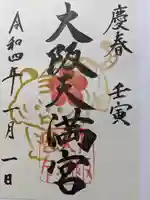 慶春
壬寅
大阪天満宮
令和四年一月一日